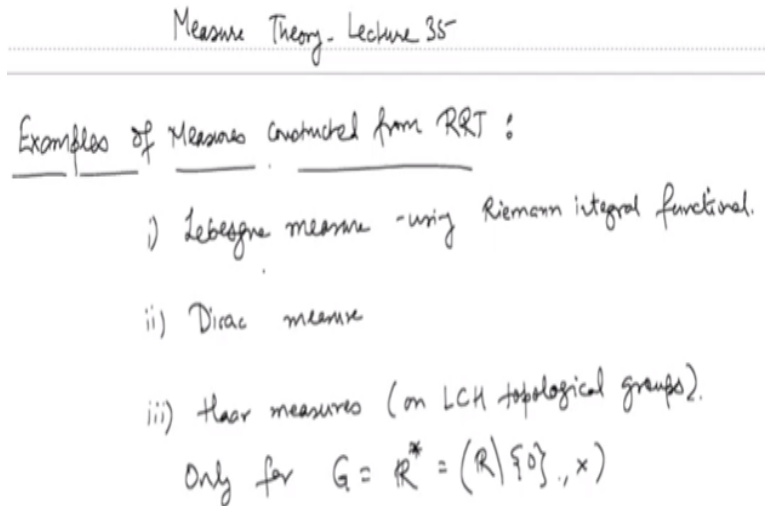 Measure Theory - Lecture 35
Examples of Measures Constructed from RRT :
i) Lebesgue measure - using Riemann integral functional.
ii) Dirac measure
iii) Haar measures (on LCH topological groups).
Only for G = ℝ* = (ℝ\{0}, ×)